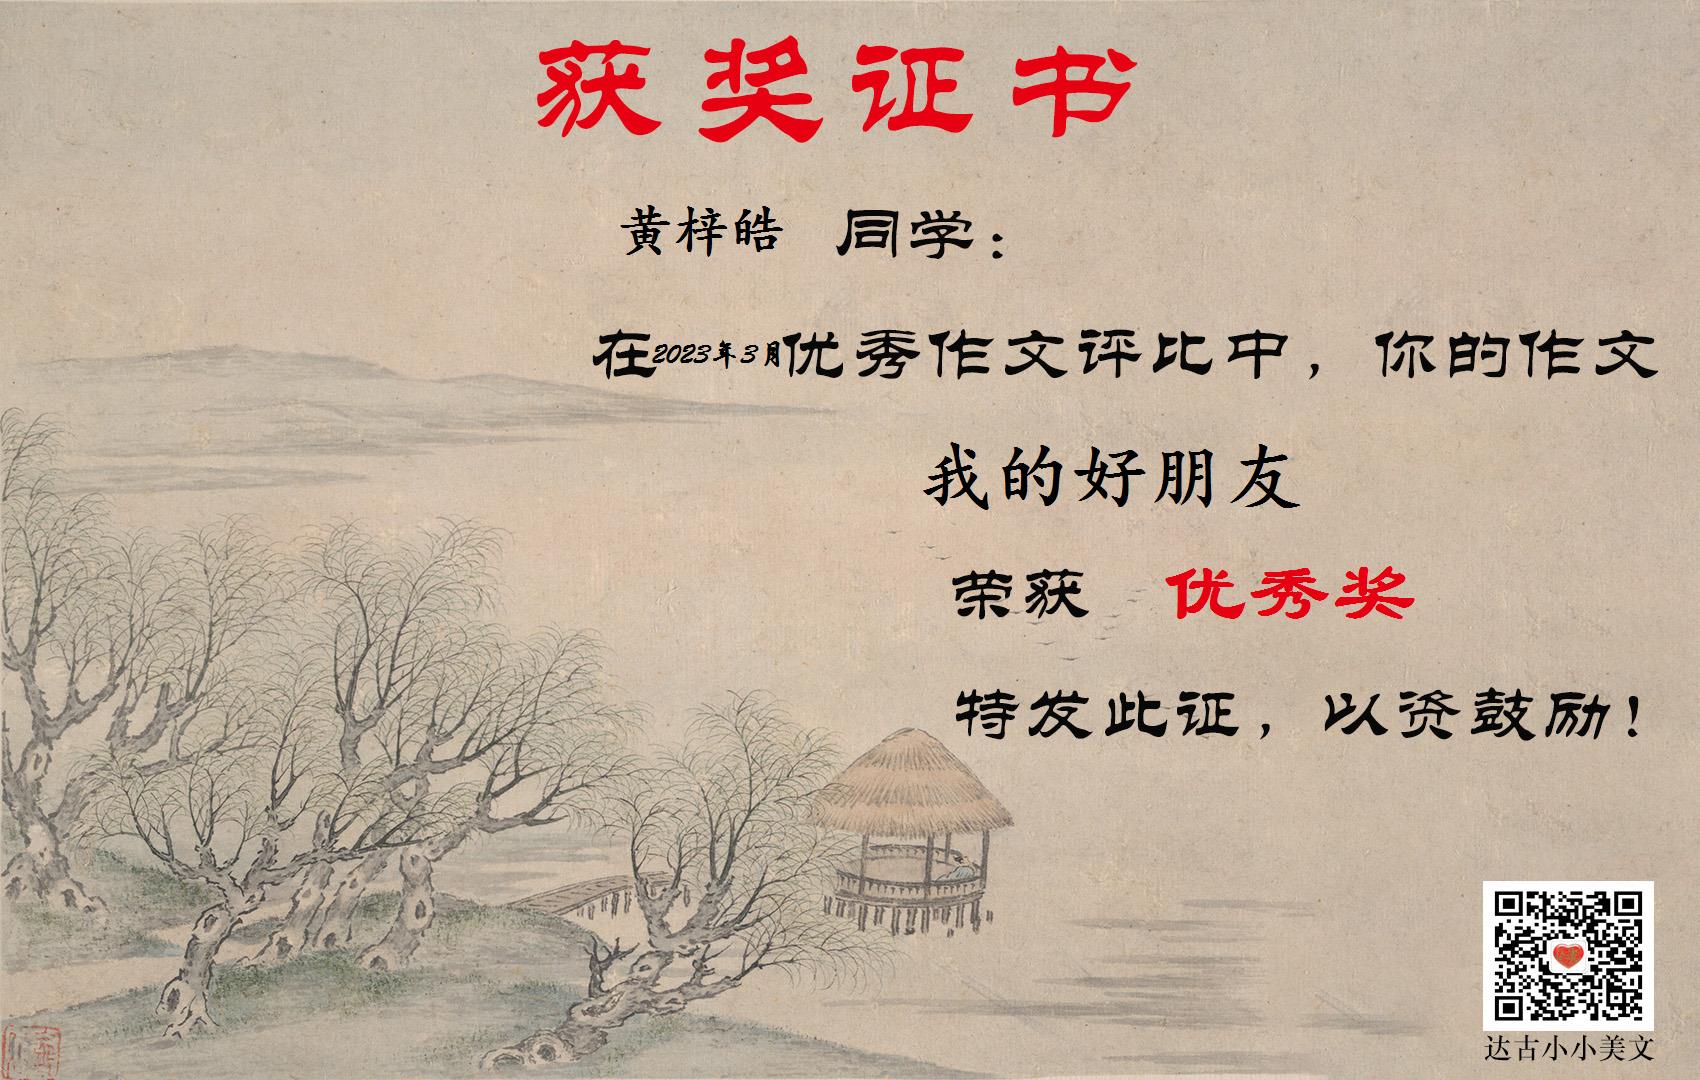 获奖证书
黄梓皓 同学：
在2023年3月优秀作文评比中，你的作文
我的好朋友
荣获 优秀奖
特发此证，以资鼓励！
达古小小美文